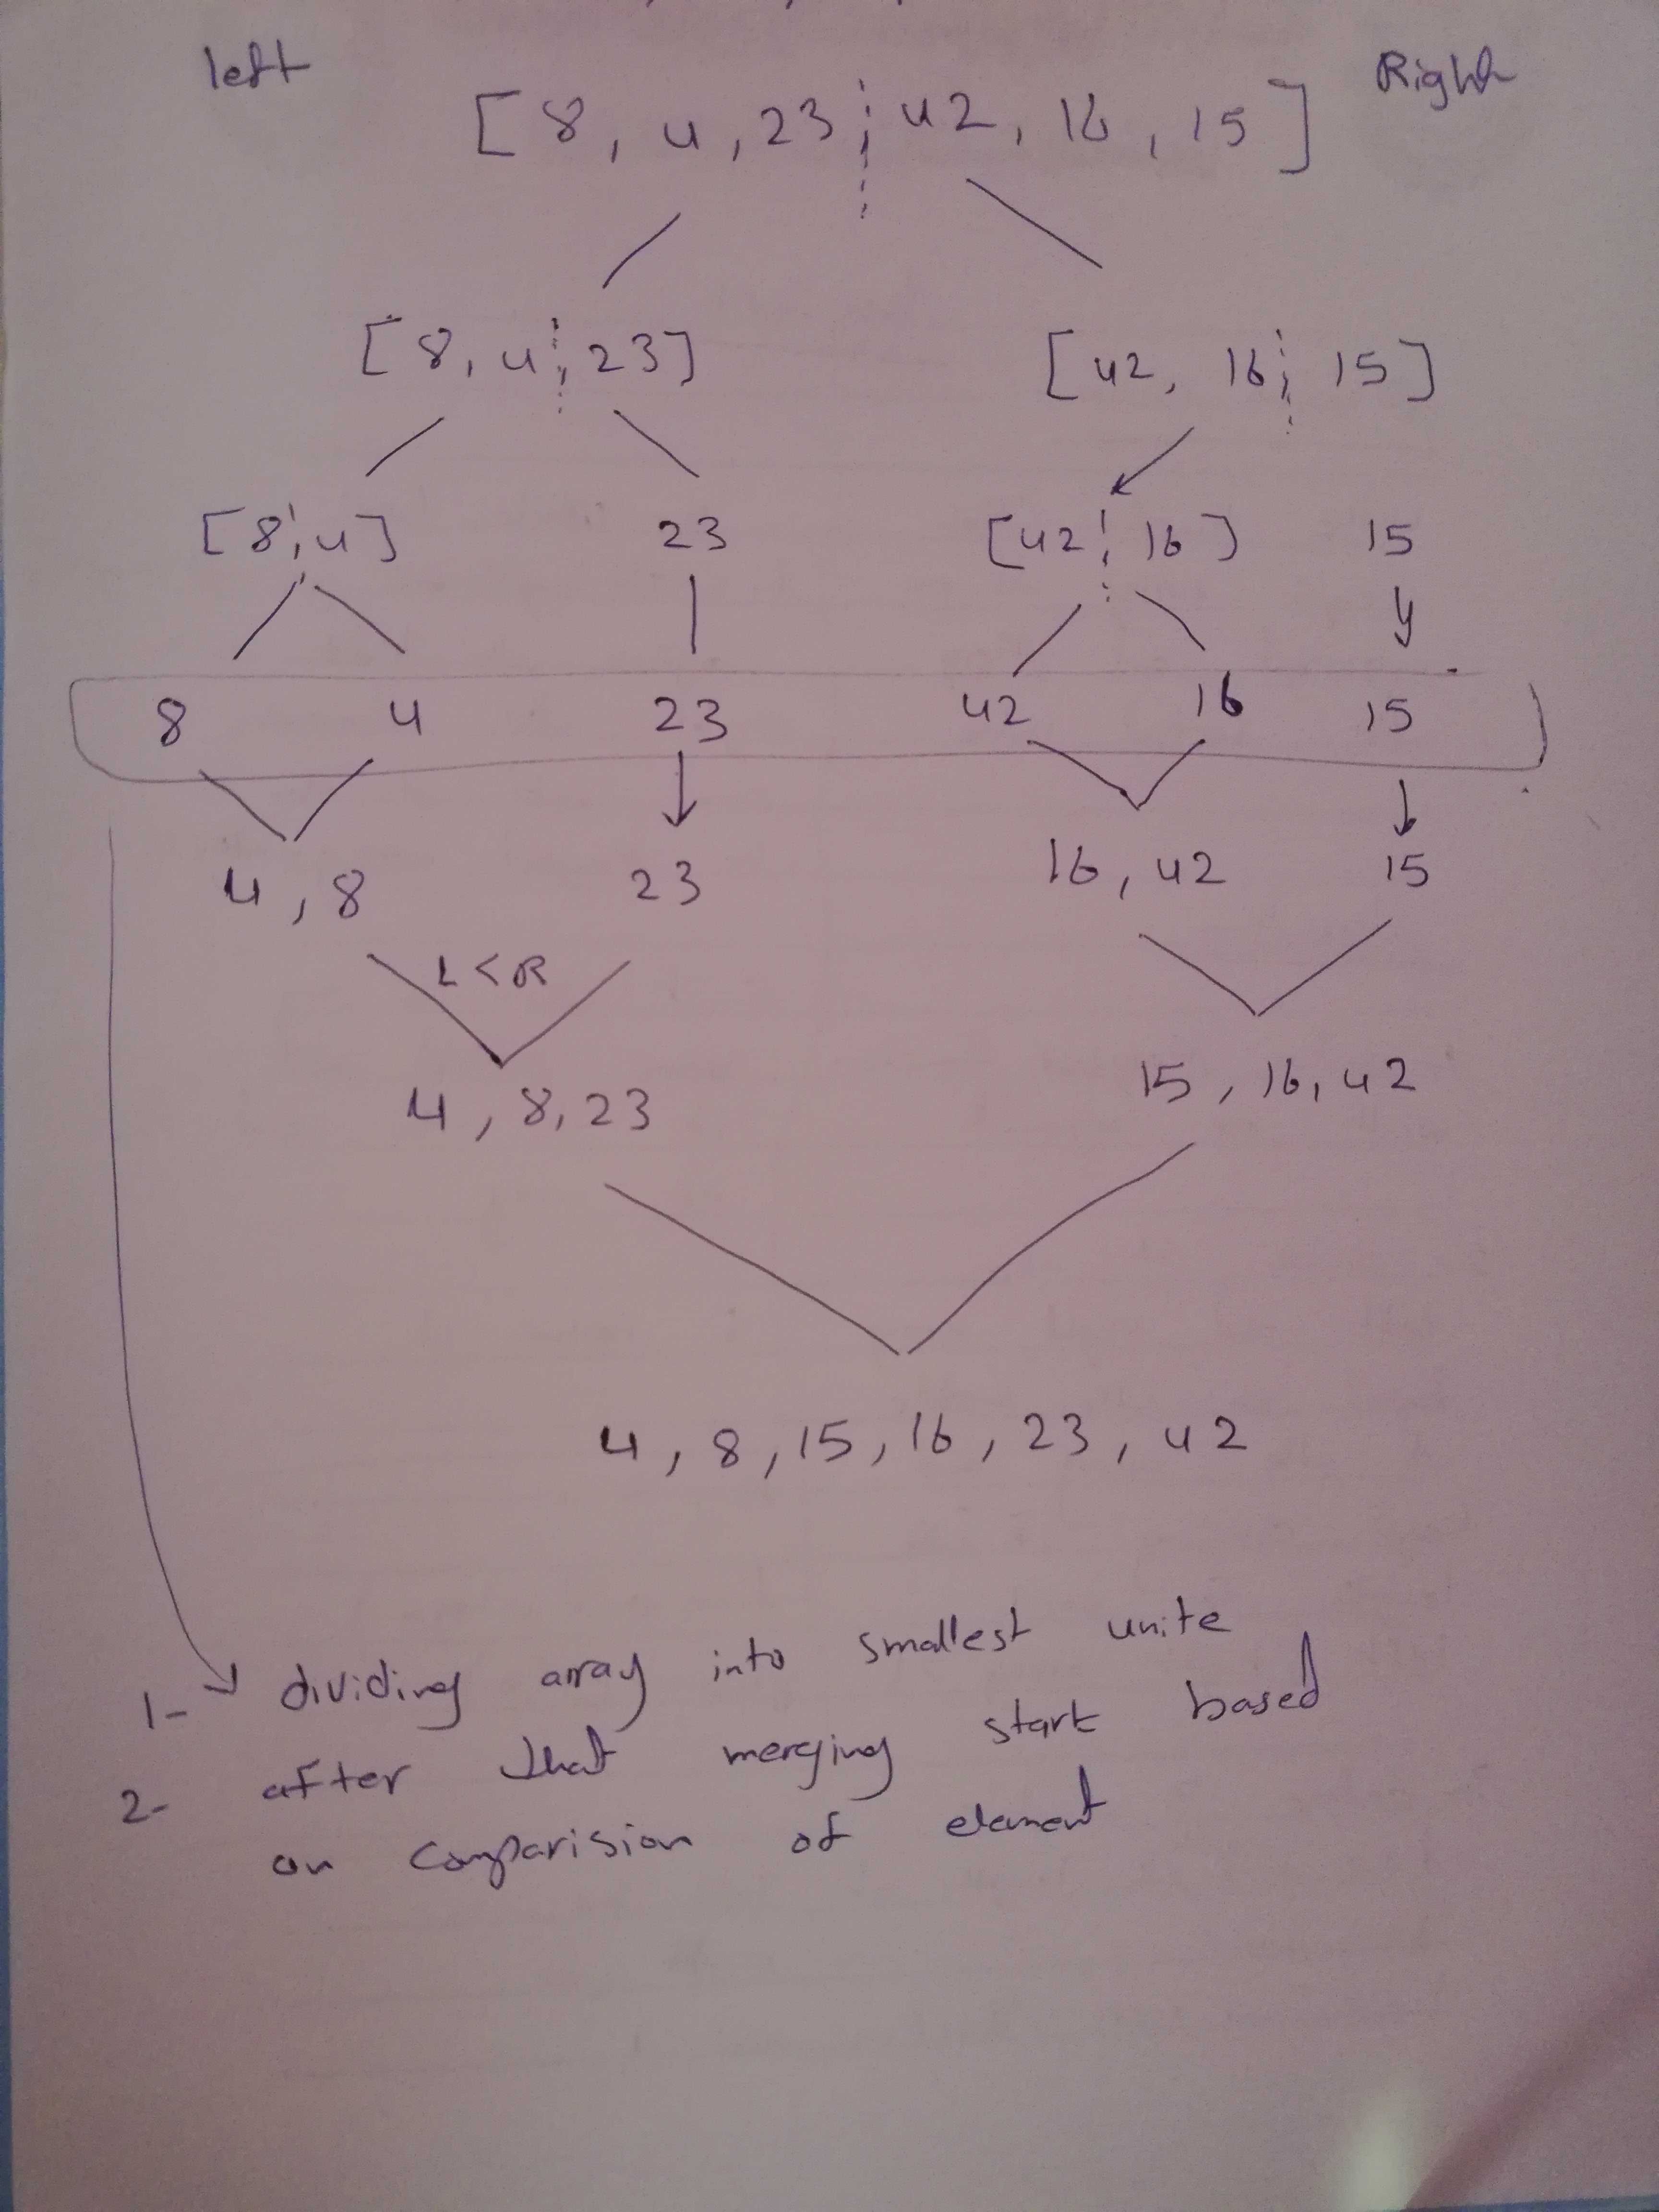 left
Right
[8, 4, 23, 42, 16, 15]
[8, 4, 23] [42, 16, 15]
[8, 4] 23 [42, 16] 15
8 4 23 42 16 15
4, 8 23 16, 42 15
L<R
4, 8, 23 15, 16, 42
4, 8, 15, 16, 23, 42
1- dividing array into smallest unite
2- after that merging start based
on comparision of element